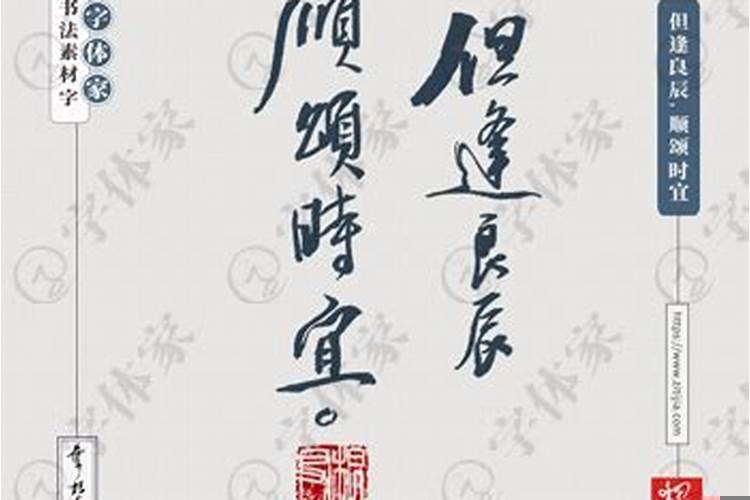 但逢良辰
順頌時宜。
但逢良辰,顺颂时宜
https://www.zitijia.com
字体家
书法素材字
字体家